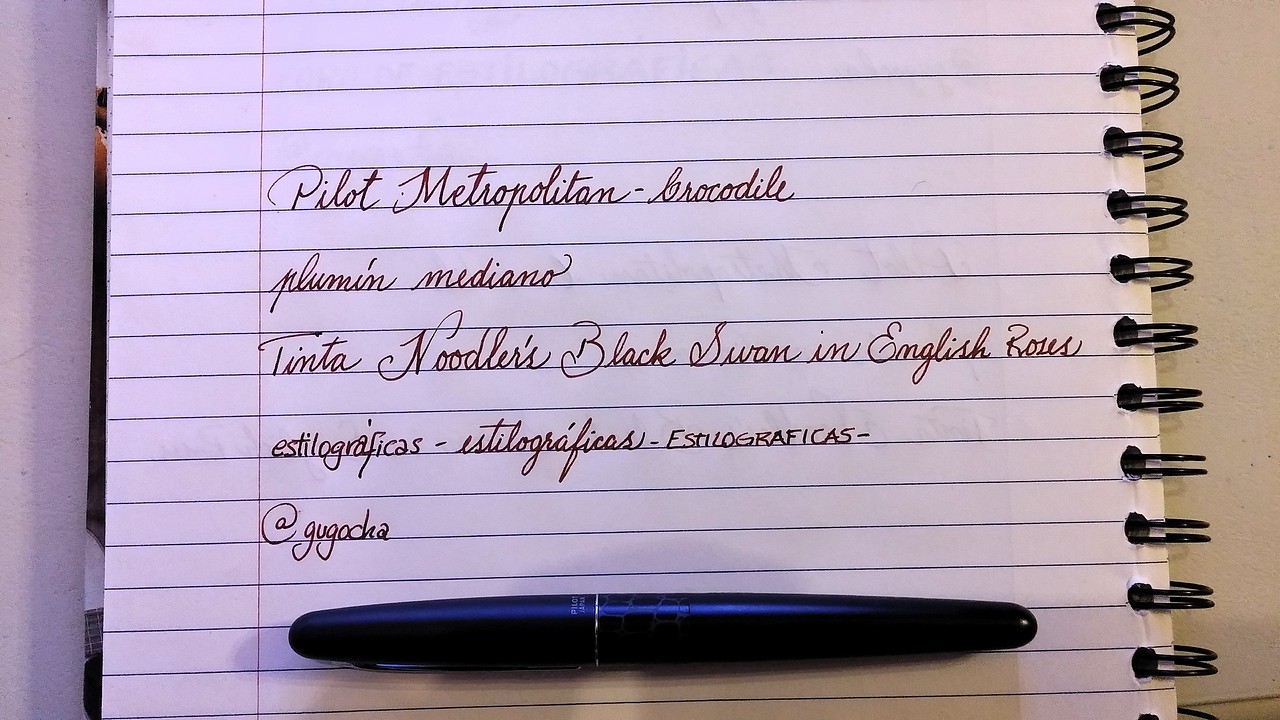 Pilot Metropolitan - Crocodile
plumín mediano
Tinta Noodler's Black Swan in English Roses
estilográficas - estilográficas - ESTILOGRAFICAS -
@gugocha
PILOT
JAPAN